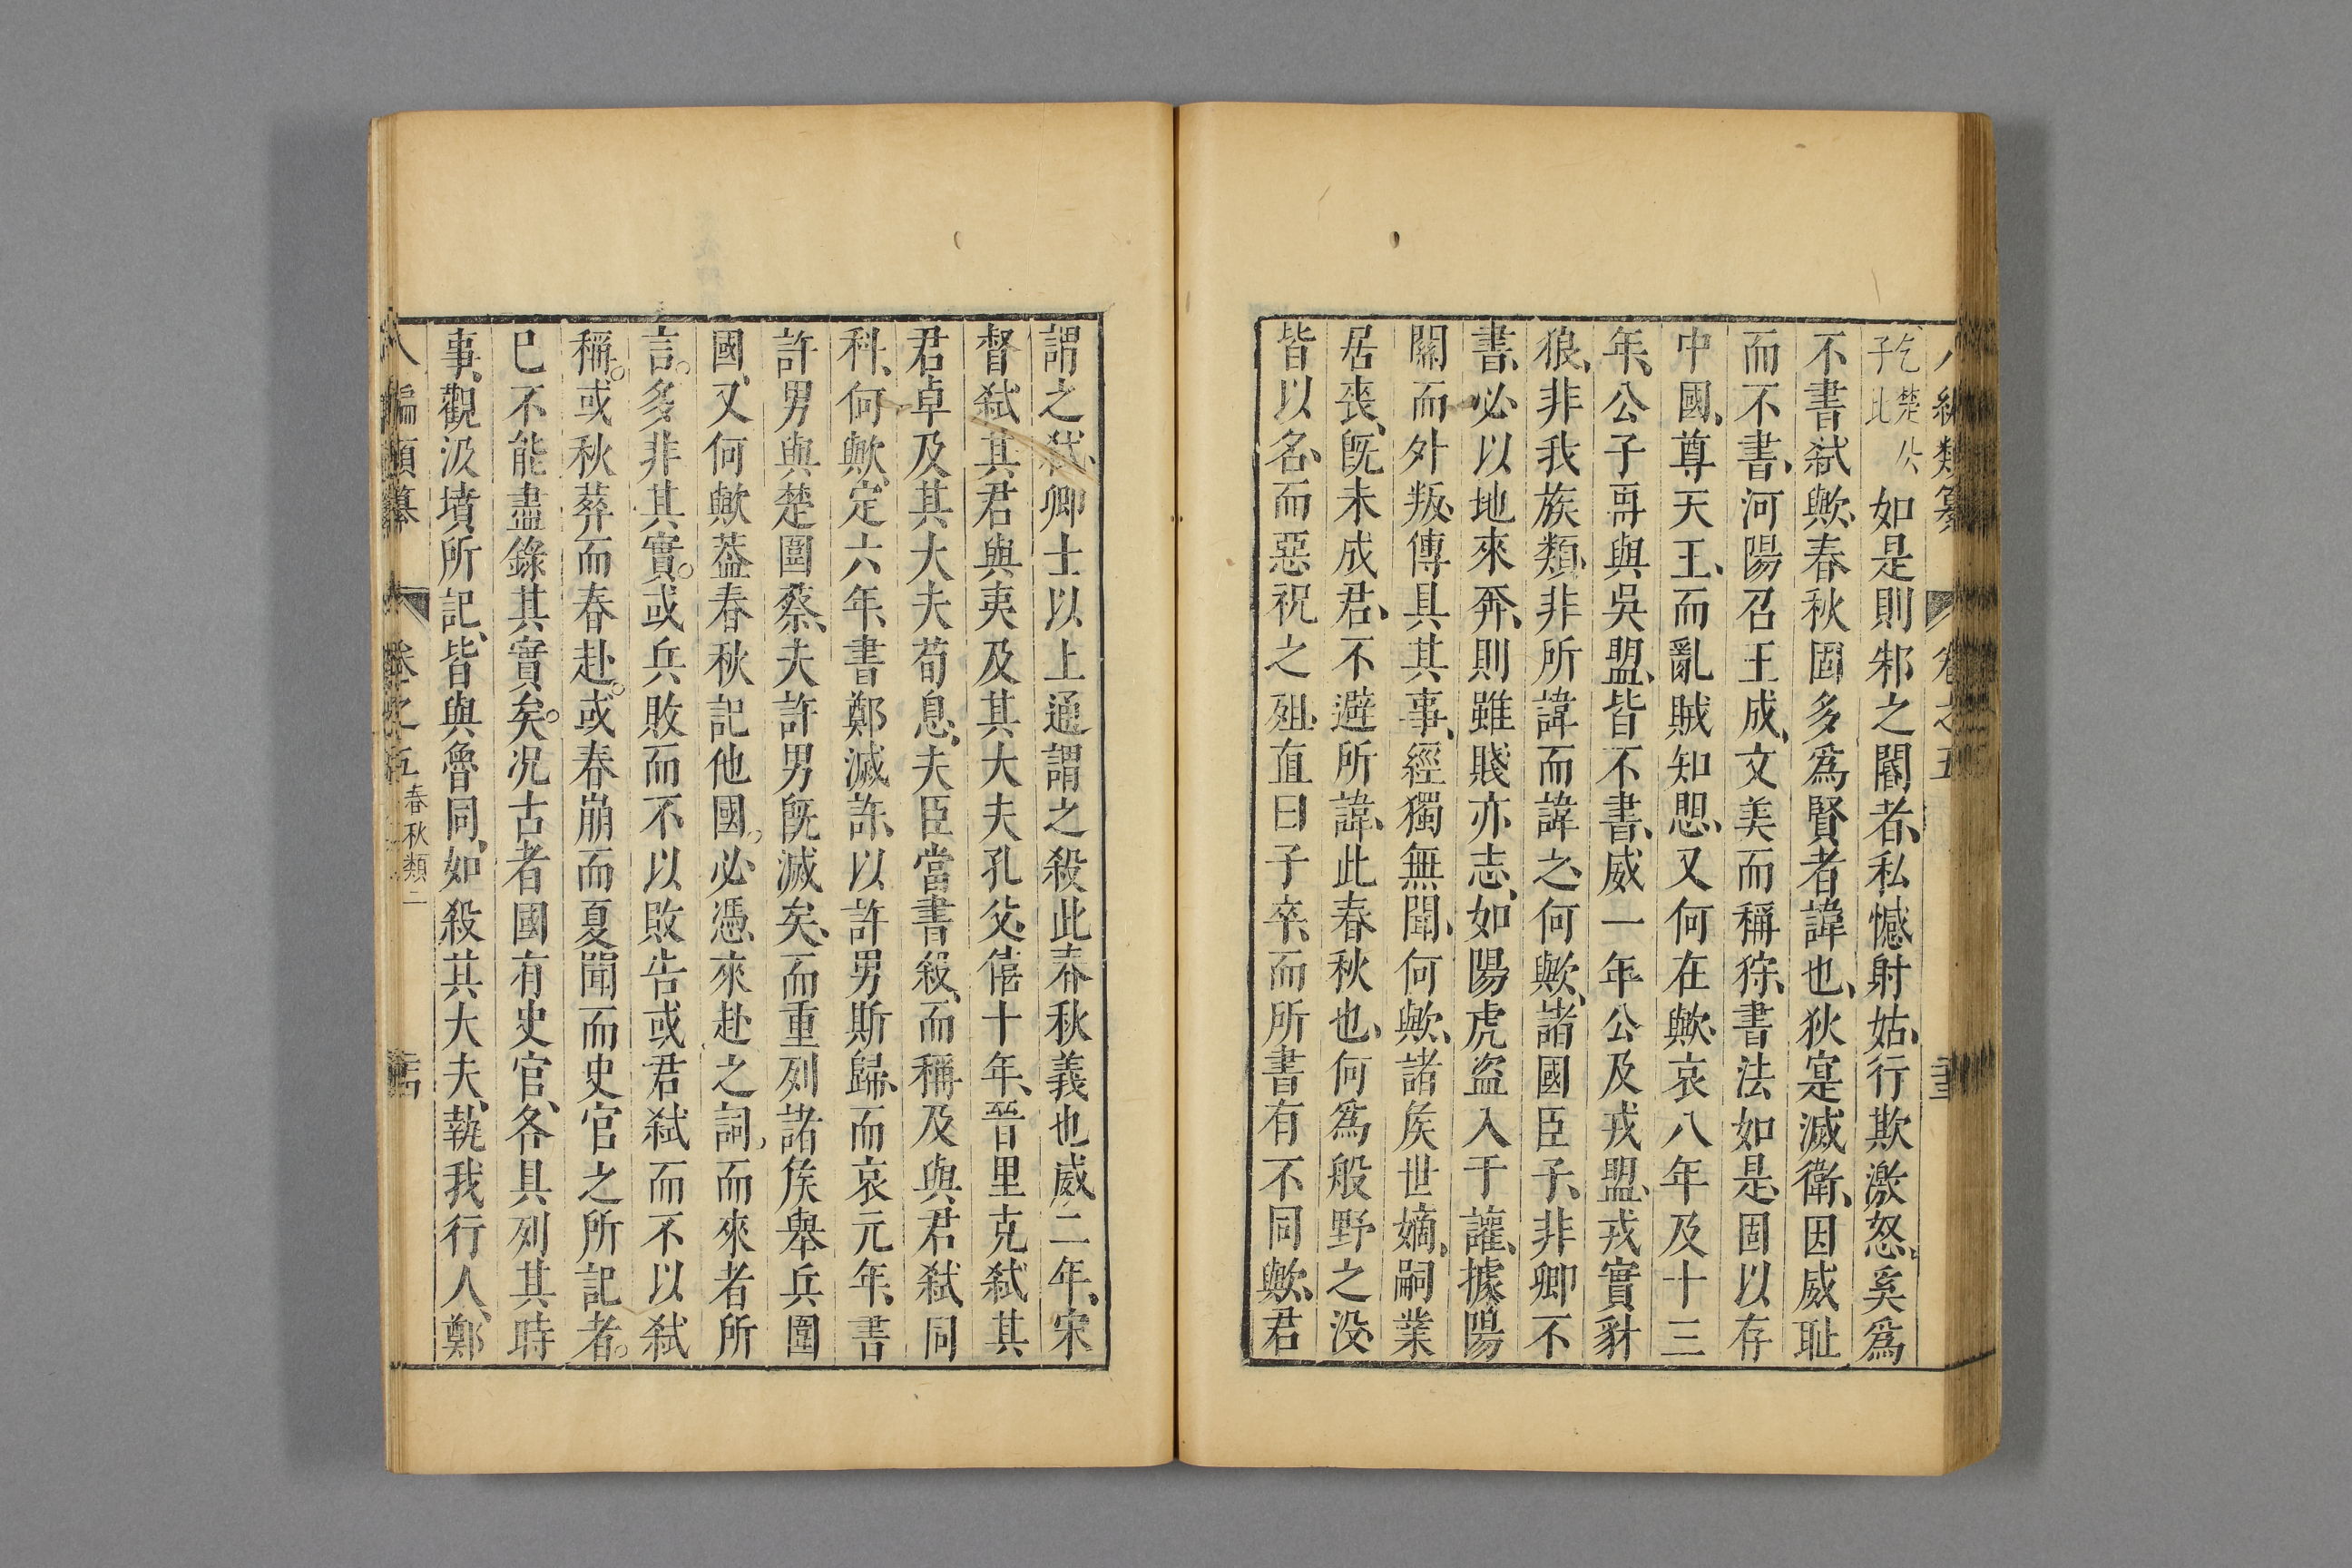 乞楚公
子比
如是則邾之閽者、私憾射姑、行欺激怒、奚爲
不書弑歟、春秋固多爲賢者諱也、狄寔滅衛、因威耻
而不書、河陽召王成、文美而稱狩、書法如是、固以存
中國、尊天王、而亂賊知思、又何在歟、哀八年及十三
年、公子再與吳盟、皆不書、威一年公及戎盟、戎實豺
狼、非我族類、非所諱而諱之、何歟、諸國臣子、非卿不
書、必以地來奔、則雖賤亦志、如陽虎盜入于讙、據陽
關而外叛、傳具其事、經獨無聞、何歟、諸矦世嫡、嗣業
居喪、旣未成君、不避所諱、此春秋也、何爲般野之没、
皆以名、而惡視之殂、直曰子卒、而所書有不同歟、君
謂之弑、卿士以上通謂之殺此春秋義也威二年、宋
督弑其君與夷及其大夫孔父、僖十年、晉里克弑其
君卓及其大夫荀息、夫臣當書殺、而稱及與君弑同
科、何歟、定六年、書鄭滅許、以許男斯歸、而哀元年、書
許男與楚圍蔡、夫許男旣滅矣、而重列諸矦舉兵圍
國、又何歟葢春秋記他國。必憑來赴之詞、而來者所
言。多非其實。或兵敗而不以敗告或君弑而不以弑
稱。或秋葬而春赴。或春崩而夏聞而史官之所記者。
巳不能盡錄其實矣。况古者國有史官、各具列其時
事、觀汲墳所記、皆與魯同、如殺其大夫、執我行人、鄭
八編類纂 卷之五 春秋類二